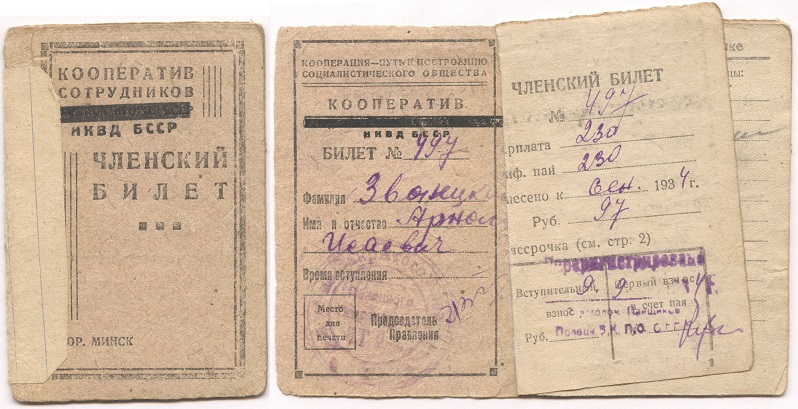 КООПЕРАТИВ
СОТРУДНИКОВ
НКВД БССР
ЧЛЕНСКИЙ
БИЛЕТ
ОР. МИНСК
КООПЕРАЦИЯ—ПУТЬ К ПОСТРОЕНИЮ
СОЦИАЛИСТИЧЕСКОГО ОБЩЕСТВА
КООПЕРАТИВ
НКВД БССР
БИЛЕТ № 497
Фамилия
Имя и отчество Арнол
Исаевич
Время вступления
Место
для
печати
Председатель
Правления
ЧЛЕНСКИЙ БИЛЕТ
№ 497
арплата 230
иф. пай 230
несено к сен. 1934г.
Руб. 97
ассрочка (см. стр. 2)
Вступительн. первый взнос
взнос в счет пая
Руб.
1